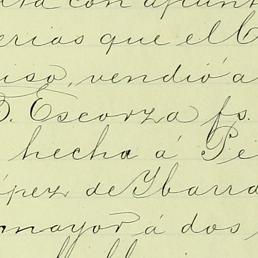 con apunt
erias que el C
uiso, vendió a
D. Escorza fs.
hecha á Pe
ópez de Ybarra
mayor á dos